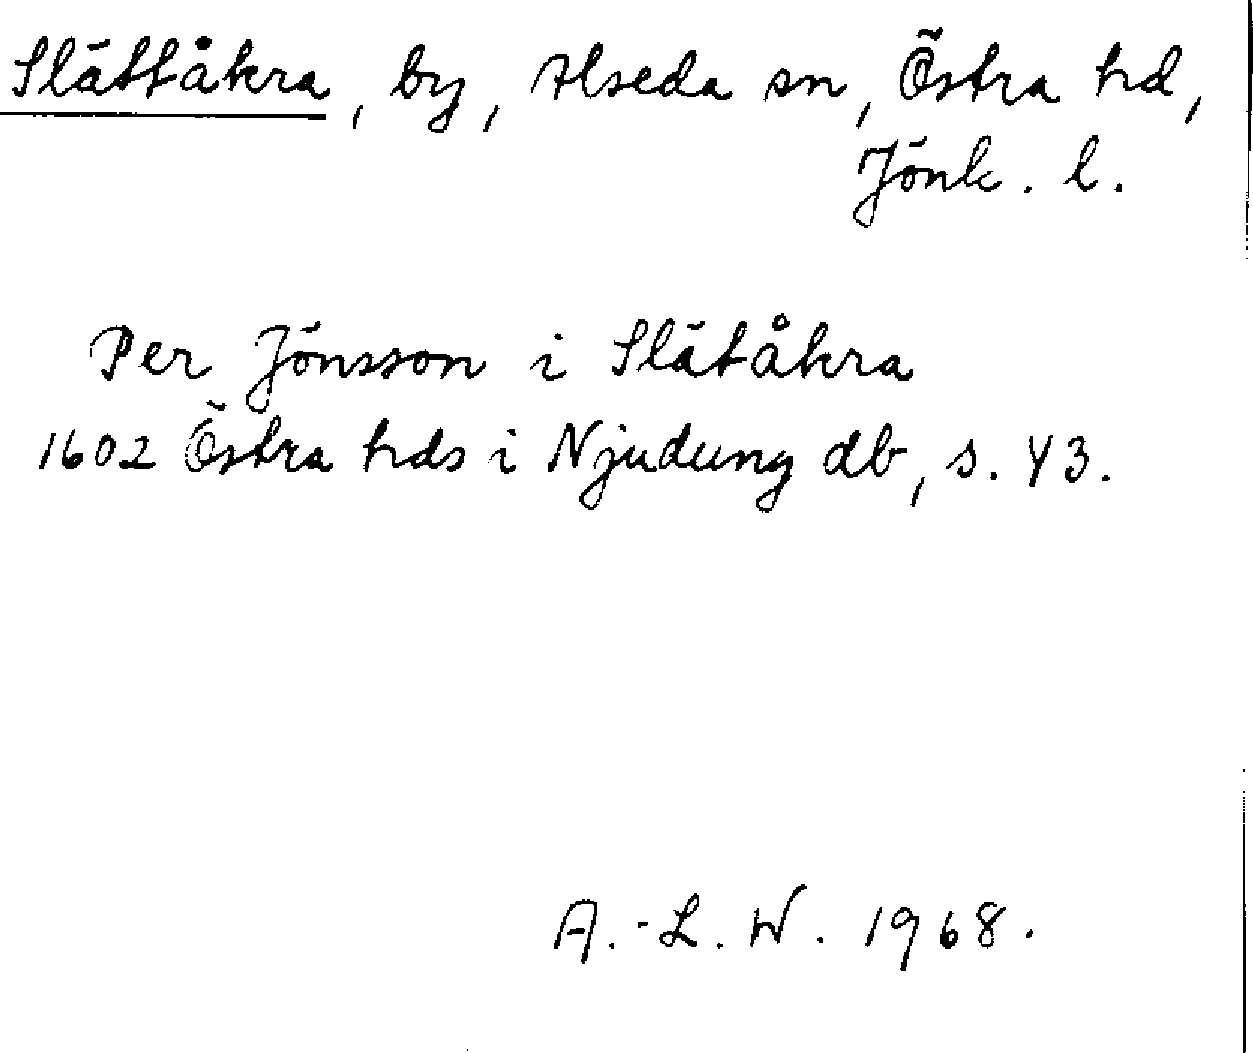 Slättåkra, by, Alseda sn, Östra hd,
Jönk. l.
Per Jönsson i Slätåkra
1602 Östra hds i Njudung db, s. 43.
A.-L. W. 1968.